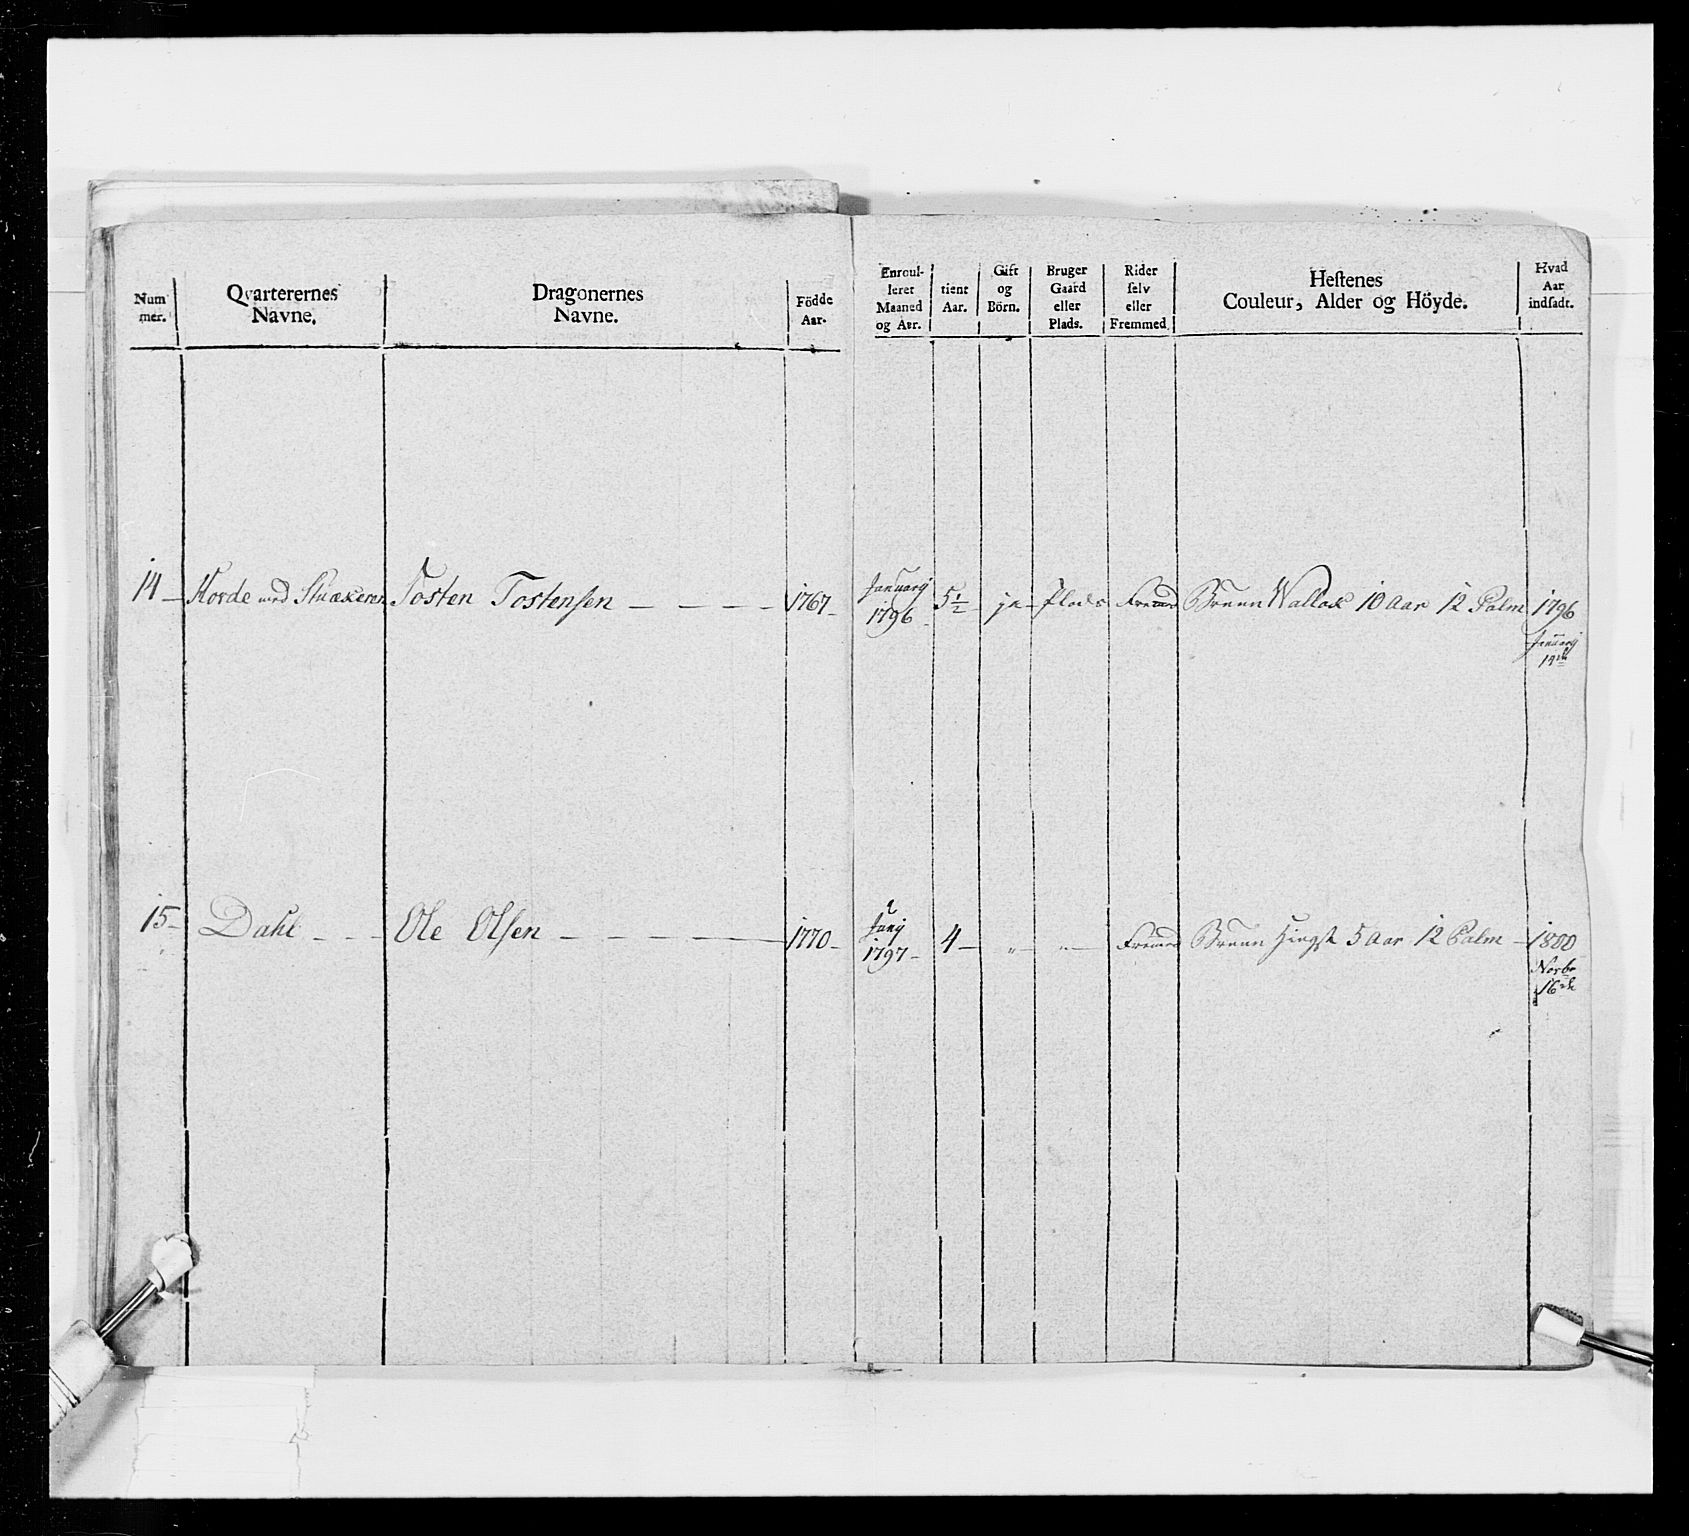 Num mer.
Qvarterernes Navne.
Dragonernes Navne.
Födde Aar.
Enroul- leret Maaned og Aar.
tient Aar.
Gift og Börn.
Bruger Gaard eller Plads.
Rider selv eller Fremmed.
Hestenes Couleur, Alder og Höyde.
Hvad Aar indsadt.
14 — Horde med Tosten Tostensen — — — — 1767 — Januarij 1796 — 5½ — ja — Plads Fremed Bruun Wallak 10 Aar 12 Palm 1796 Januarij
15 — Dahl — — — Ole Olsen — — — — — 1770 — Junij 1797 — 4 — " — " — Fremed Bruun Hingst 5 Aar 12 Palm — 1800 Novbr 16de